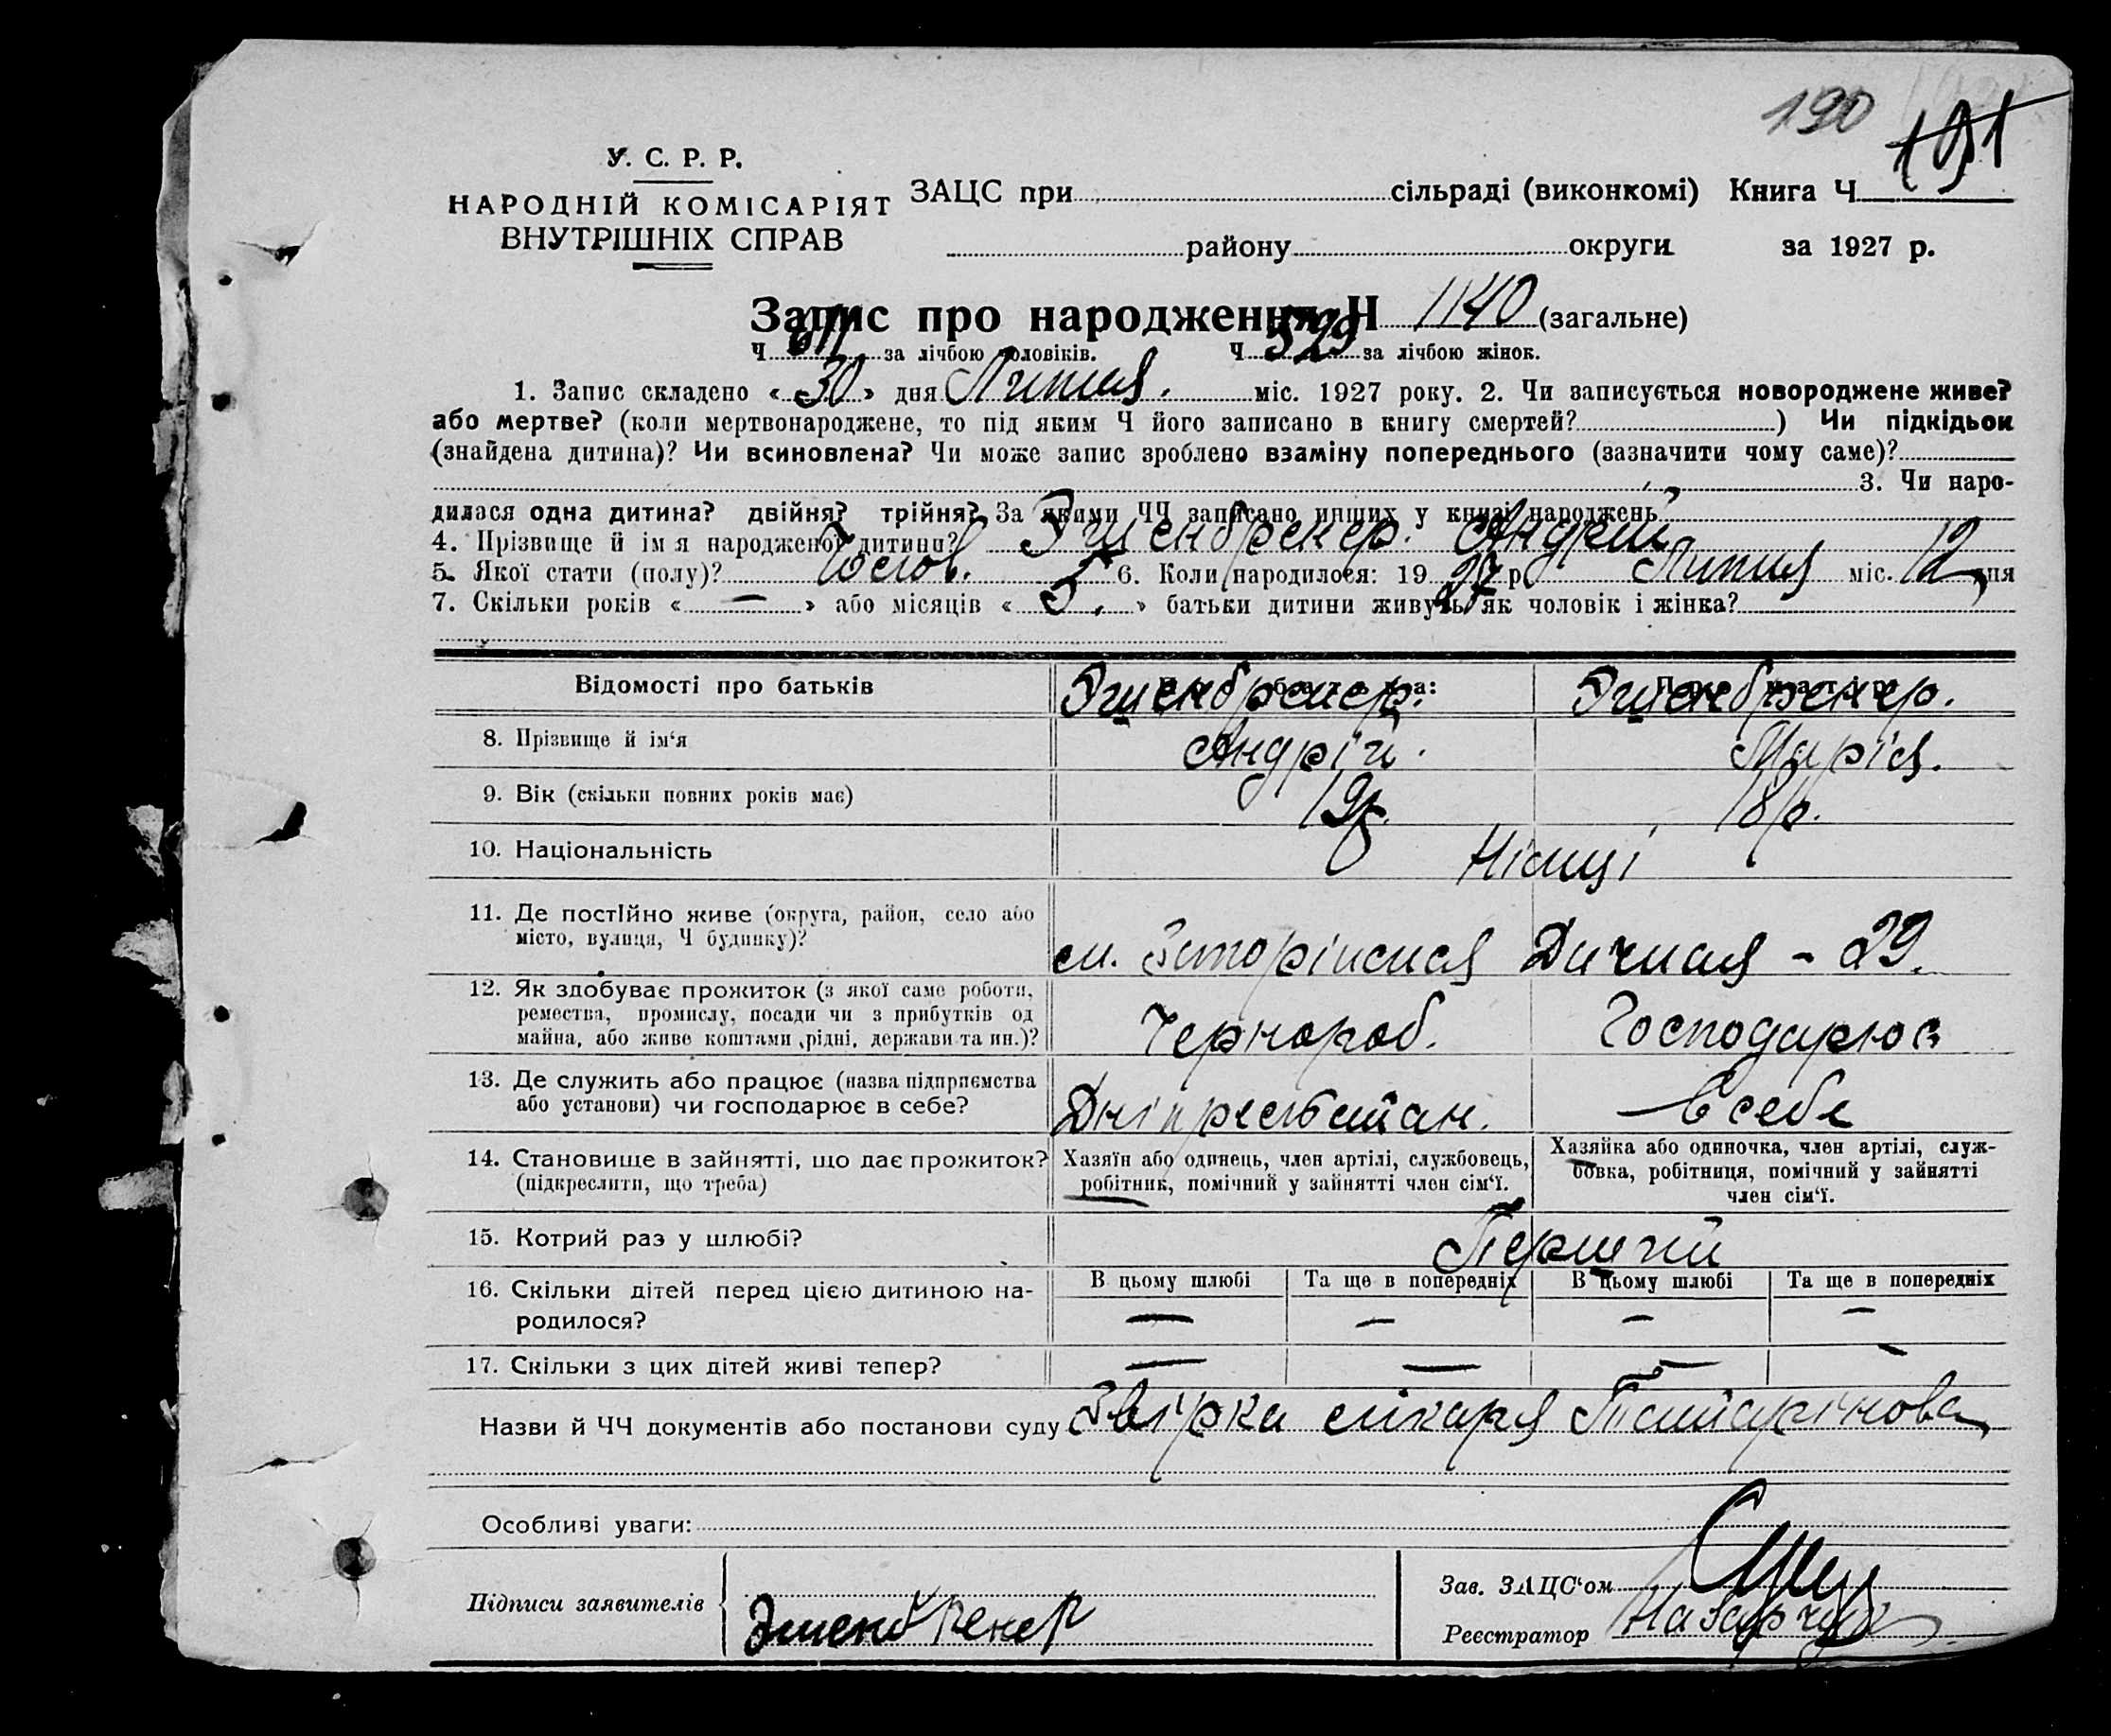 190
191
У. С. Р. Р.
НАРОДНІЙ КОМІСАРІЯТ
ВНУТРІШНІХ СПРАВ
ЗАЦС при сільраді (виконкомі) Книга Ч
району округи за 1927 р.
Запис про народження Ч 1140 (загальне)
Ч 611 за лічбою чоловіків. Ч 529 за лічбою жінок.
1. Запис складено « 30 » дня Липня. міс. 1927 року. 2. Чи записується новороджене живе?
або мертве? (коли мертвонароджене, то під яким Ч його записано в книгу смертей? ) Чи підкідьок
(знайдена дитина)? Чи всиновлена? Чи може запис зроблено взаміну попереднього (зазначити чому саме)?
3. Чи наро-
дилася одна дитина? двійня? трійня? За якими ЧЧ записано инших у книзі народжень
4. Прізвище й ім'я народженої дитини? Эшенбренер. Андрій
5. Якої стати (полу)? Чолов. 6. Коли народилося: 19 27 р Липня міс. 12 дня
7. Скільки років « — » або місяців « 5. » батьки дитини живуть як чоловік і жінка?
Відомості про батьків
Эшенбренер. Эшенбренер.
8. Прізвище й ім‘я Андрій. Марія.
9. Вік (скільки повних років має) 19р. 18р.
10. Національність Німці
11. Де постійно живе (округа, район, село або
місто, вулиця, Ч будинку)? - 29.
12. Як здобуває прожиток (з якої саме роботи,
ремества, промислу, посади чи з прибутків од
майна, або живе коштами рідні, держави та ин.)? Чернороб. Господарює
13. Де служить або працює (назва підприємства
або установи) чи господарює в себе? в себе
14. Становище в зайнятті, що дає прожиток?
(підкреслити, що треба)
Хазяїн або одинець, член артілі, службовець,
робітник, помічний у зайнятті член сім‘ї.
Хазяйка або одиночка, член артілі, служ-
бовка, робітниця, помічний у зайнятті
член сім‘ї.
15. Котрий раз у шлюбі? Перший
В цьому шлюбі Та ще в попередніх В цьому шлюбі Та ще в попередніх
16. Скільки дітей перед цією дитиною на-
родилося? — — — —
17. Скільки з цих дітей живі тепер? — — — —
Назви й ЧЧ документів або постанови суду лікаря
Особливі уваги:
Підписи заявителів
Эшенбренер
Зав. ЗАЦС‘ом
Реєстратор Назарчук